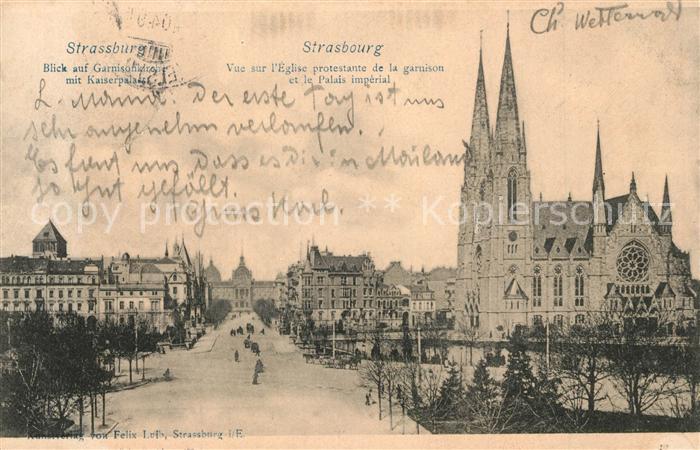 Ch. Wetterwald
Strassburg
Blick auf Garnisonkirche
mit Kaiserpalast
Strasbourg
Vue sur l'Église protestante de la garnison
et le Palais impérial
L. Mama. Der erste Tag ist uns
sehr angenehm verlaufen.
Es freut uns dass es Dir in Mailand
so gut gefällt.
Gruss
copyright passion for collectors
Kunstverlag von Felix Luib, Strassburg i/E.